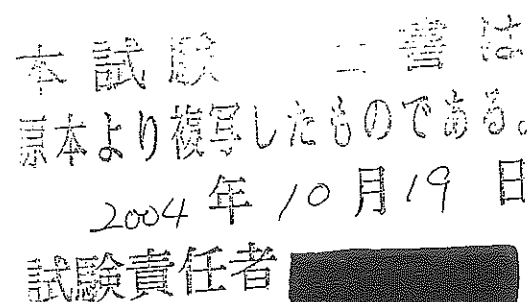 本試験 書は
原本より複写したものである。
2004年10月19日
試験責任者